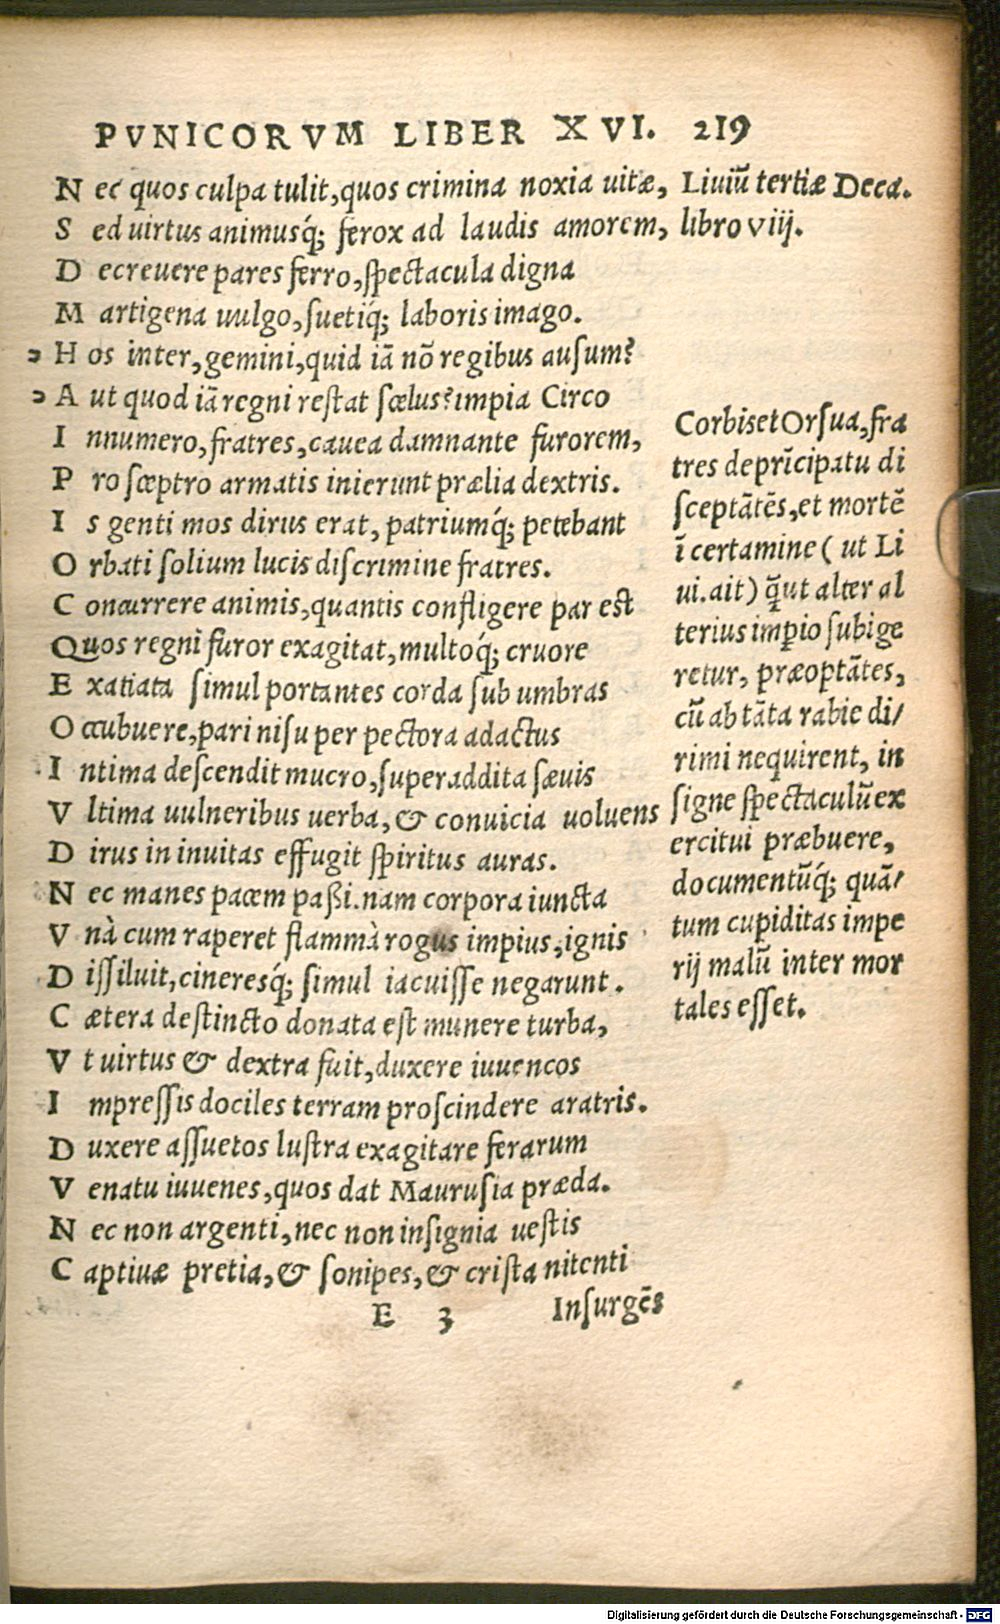 PVNICORVM LIBER XVI. 219
Nec quos culpa tulit, quos crimina noxia uitæ,
Sed uirtus animusq́; ferox ad laudis amorem,
Decreuere pares ferro, spectacula digna
Martigena uulgo, suetiq́; laboris imago.
Hos inter, gemini, quid iã nõ regibus ausum?
Aut quod iã regni restat scelus? impia Circo
Innumero, fratres, cauea damnante furorem,
Pro sceptro armatis inierunt prælia dextris.
Is genti mos dirus erat, patriumq́; petebant
Orbati solium lucis discrimine fratres.
Concurrere animis, quantis confligere par est
Quos regni furor exagitat, multoq́; cruore
Exatiata simul portantes corda sub umbras
Occubuere, pari nisu per pectora adactus
Intima descendit mucro, superaddita sæuis
Vltima uulneribus uerba, & conuicia uoluens
Dirus in inuitas effugit spiritus auras.
Nec manes pacem passi. nam corpora iuncta
Vnà cum raperet flammà rogus impius, ignis
Dissiluit, cineresq́; simul iacuisse negarunt.
Cætera destincto donata est munere turba,
Vt uirtus & dextra fuit, duxere iuuencos
Impressis dociles terram proscindere aratris.
Duxere assuetos lustra exagitare ferarum
Venatu iuuenes, quos dat Maurusia præda.
Nec non argenti, nec non insignia uestis
Captiuæ pretia, & sonipes, & crista nitenti
E 3 Insurgẽs
Liuiũ tertiæ Deca.
libro viij.
Corbis et Orsua, fra
tres de prĩcipatu di
sceptãtẽs, et mortẽ
ĩ certamine ( ut Li
ui. ait) q̃ ut alter al
terius imp̱io subige
retur, præoptãtes,
cũ ab tãta rabie di/
rimi nequirent, in
signe spectaculũ ex
ercitui præbuere,
documentũq́; quã/
tum cupiditas impe
rij malũ inter mor
tales esset.
Digitalisierung gefördert durch die Deutsche Forschungsgemeinschaft - DFG